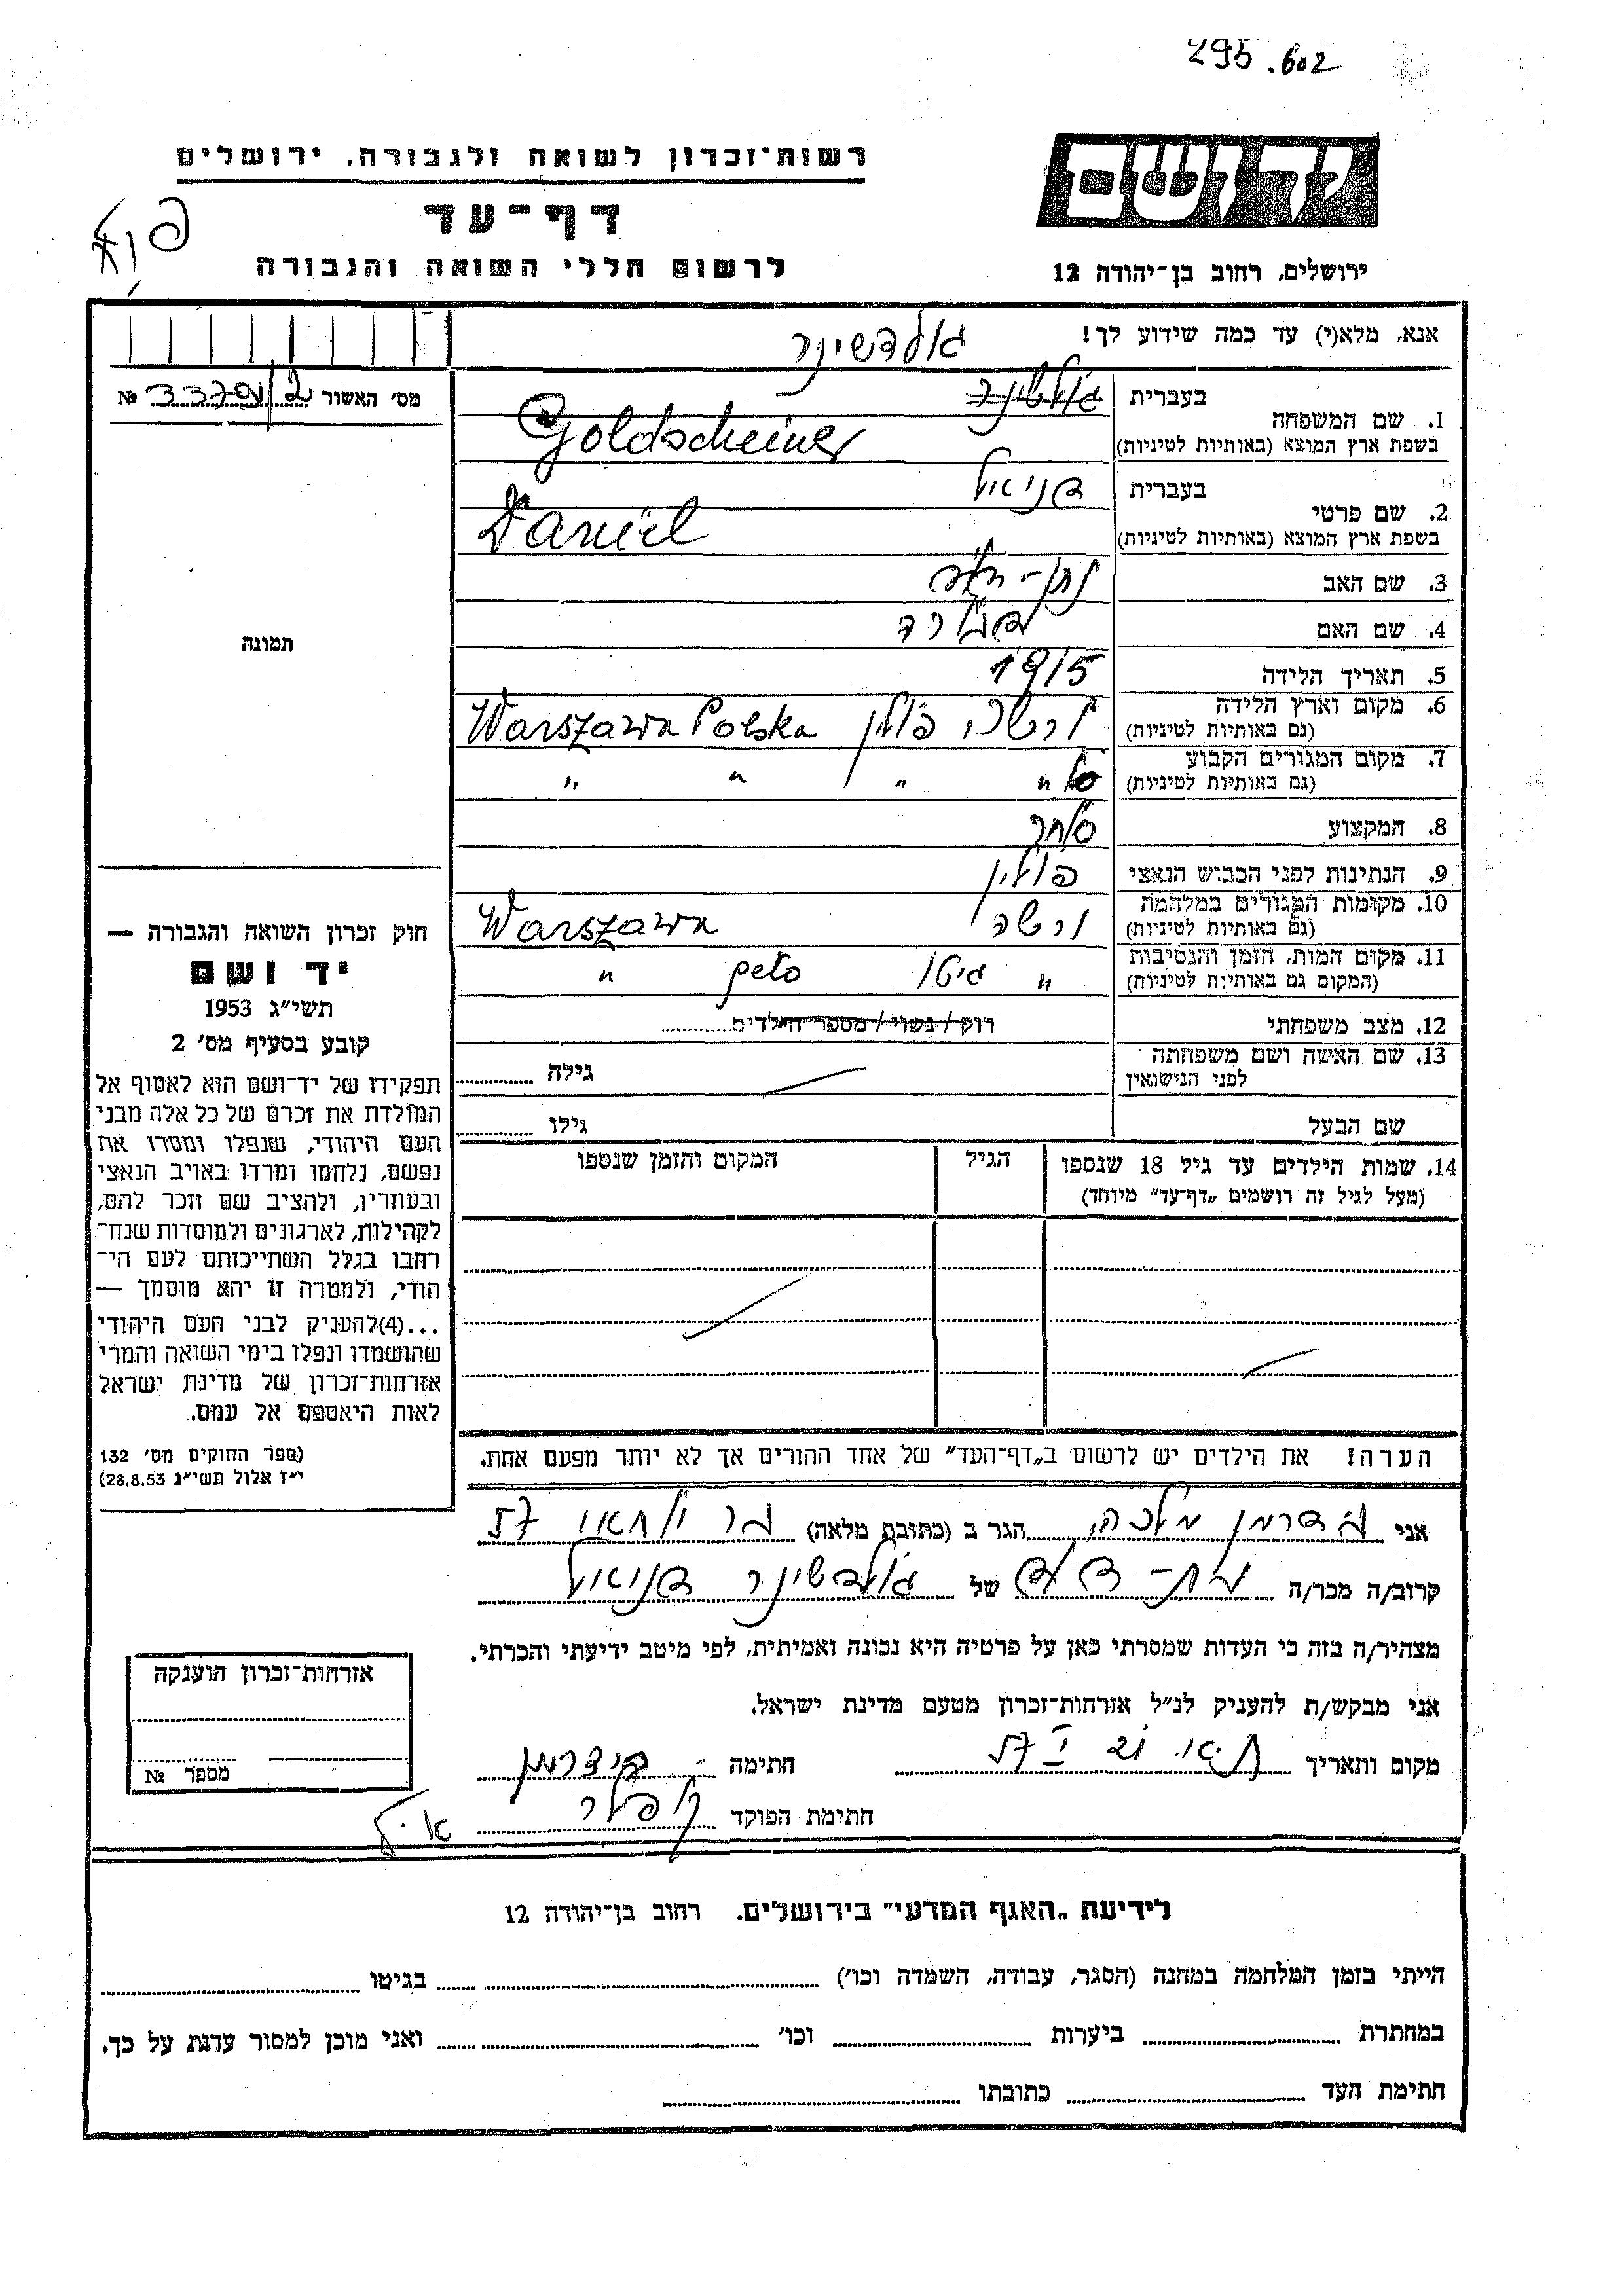 295.602
יד ושם
רשות־זכרון לשואה ולגבורה, ירושלים
דף־עד
לרשום חללי השואה והגבורה
ירושלים, רחוב בן־יהודה 12
אנא, מלא(י) עד כמה שידוע לך!
גולדשינר
מס׳ האשור №
1. שם המשפחה
בעברית
בשפת ארץ המוצא (באותיות לטיניות) Goldscheiner
2. שם פרטי
בעברית דניאל
בשפת ארץ המוצא (באותיות לטיניות) Daniel
3. שם האב נתן-
4. שם האם
5. תאריך הלידה 1915
6. מקום וארץ הלידה
(גם באותיות לטיניות) ורשה, פולין Warszawa Polska
7. מקום המגורים הקבוע
(גם באותיות לטיניות) " " " "
8. המקצוע סוחר
9. הנתינות לפני הכבוש הנאצי פולין
10. מקומות המגורים במלחמה
(גם באותיות לטיניות) ורשה Warszawa
11. מקום המות, הזמן והנסיבות
(המקום גם באותיות לטיניות) " גיטו geto "
12. מצב משפחתי רוק/נשוי/מספר הילדים
13. שם האשה ושם משפחתה
לפני הנישואין גילה
שם הבעל גילו
14. שמות הילדים עד גיל 18 שנספו
(מעל לגיל זה רושמים „דף־עד״ מיוחד)
הגיל
המקום והזמן שנספו
תמונה
חוק זכרון השואה והגבורה —
יד ושם
תשי״ג 1953
קובע בסעיף מס׳ 2
תפקידו של יד־ושם הוא לאסוף אל
המולדת את זכרם של כל אלה מבני
העם היהודי, שנפלו ומסרו את
נפשם, נלחמו ומרדו באויב הנאצי
ובעוזריו, ולהציב שם וזכר להם,
לקהילות, לארגונים ולמוסדות שנח־
רבו בגלל השתייכותם לעם הי־
הודי, ולמטרה זו יהא מוסמך —
...(4)להעניק לבני העם היהודי
שהושמדו ונפלו בימי השואה והמרי
אזרחות־זכרון של מדינת ישראל
לאות היאספם אל עמם.
(ספר החוקים מס׳ 132
י״ז אלול תשי״ג 28.8.53)
הערה! את הילדים יש לרשום ב„דף־העד״ של אחד ההורים אך לא יותר מפעם אחת.
אני מלכה, הגר ב (כתובת מלאה)
קרוב/ה מכר/ה בת-דוד של גולדשינר דניאל
מצהיר/ה בזה כי העדות שמסרתי כאן על פרטיה היא נכונה ואמיתית, לפי מיטב ידיעתי והכרתי.
אני מבקש/ת להעניק לנ״ל אזרחות־זכרון מטעם מדינת ישראל.
מקום ותאריך חתימה
חתימת הפוקד
אזרחות־זכרון הוענקה
מספר №
לידיעת „האגף המדעי״ בירושלים. רחוב בן־יהודה 12
הייתי בזמן המלחמה במחנה (הסגר, עבודה, השמדה וכו׳) בגיטו
במחתרת ביערות וכו׳ ואני מוכן למסור עדות על כך.
חתימת העד כתובתו